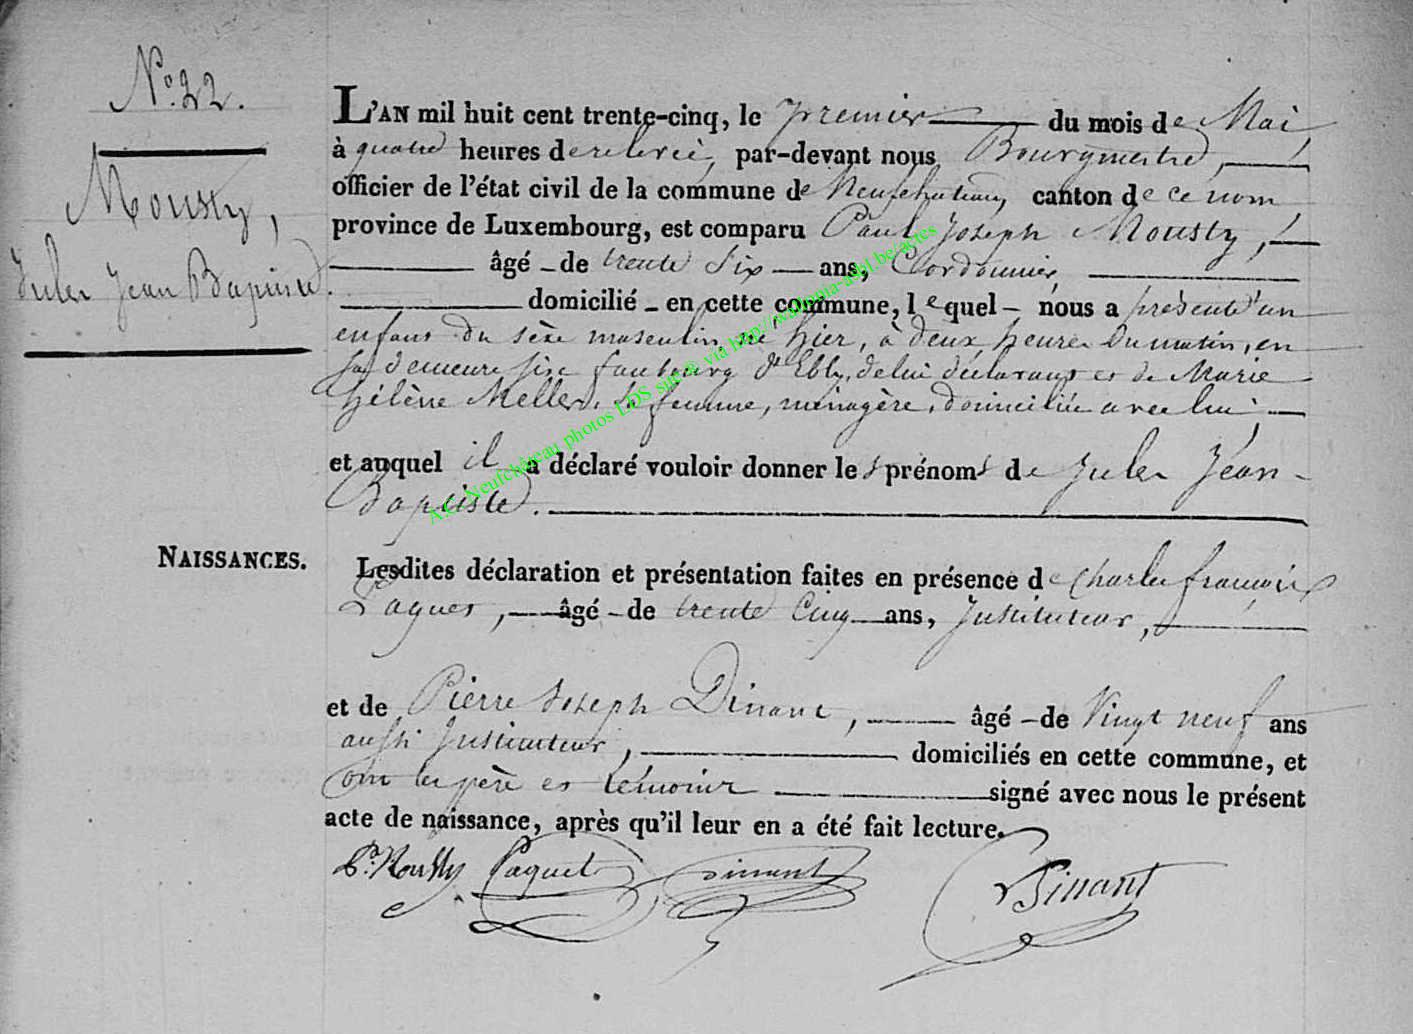 N° 22.
Mousty,
Jules Jean Baptiste.
NAISSANCES.
L'AN mil huit cent trente-cinq, le premier du mois de Mai
à quatre heures de relevée, par-devant nous Bourgmestre,
officier de l'état civil de la commune de Neufchateau, canton de ce nom,
province de Luxembourg, est comparu Paul Joseph Mousty,
âgé de trente Six ans, Cordonnier,
domicilié en cette commune, lequel nous a présenté un
enfant du sèxe masculin, né hier, à deux heures du matin, en
sa demeure sise faubourg d'Ebly, de lui déclarant et de Marie
Hélène Meller, sa femme, ménagère, domiciliée avec lui
et auquel il a déclaré vouloir donner les prénoms de Jules Jean-
Baptiste.
Lesdites déclaration et présentation faites en présence de Charles françois
Paquet, âgé de trente Cinq ans, Instituteur,
et de Pierre Joseph Dinant, âgé de Vingt neuf ans
aussi Instituteur, domiciliés en cette commune, et
ont les père et témoins signé avec nous le présent
acte de naissance, après qu'il leur en a été fait lecture.
P. J. Mousty Paquet Dinant Dinant
A.C. Neufchâteau photos LDS sur © via http://wallonia-asbl.be/actes